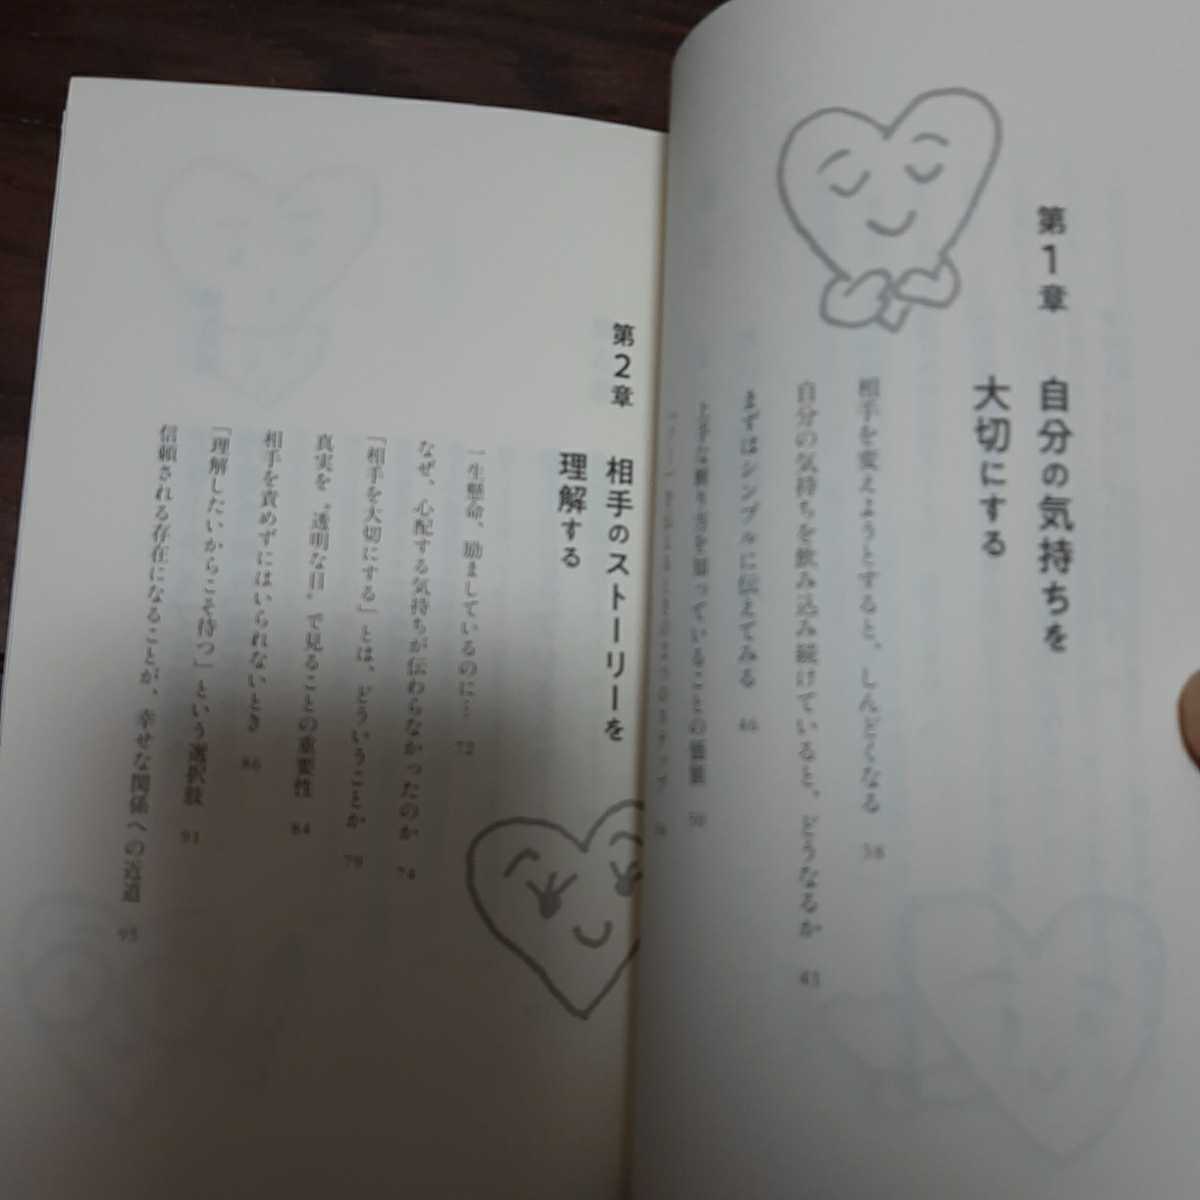 第1章
自分の気持ちを
大切にする
相手を変えようとすると、しんどくなる 38
自分の気持ちを飲み込み続けていると、どうなるか 41
まずはシンプルに伝えてみる 46
上手な頼り方を知っていることの価値 50
第2章
相手のストーリーを
理解する
一生懸命、励ましているのに… 72
なぜ、心配する気持ちが伝わらなかったのか 74
「相手を大切にする」とは、どういうことか 79
真実を〝透明な目〟で見ることの重要性 84
相手を責めずにはいられないとき 86
「理解したいからこそ待つ」という選択肢 91
信頼される存在になることが、幸せな関係への近道 95